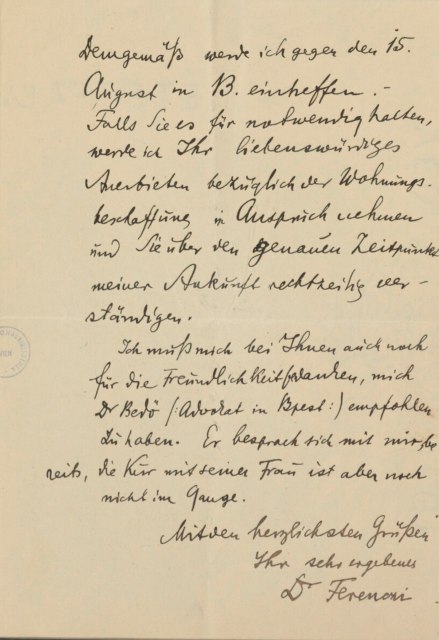 Demgemäß werde ich gegen den 15.
August in B. eintreffen. -
Falls Sie es für notwendig halten,
werde ich Ihr liebenswürdiges
Anerbieten bezüglich der Wohnungs-
beschaffung in Anspruch nehmen
und Sie über den genauen Zeitpunkt
meiner Ankunft rechtzeitig ver-
ständigen.
Ich muß mich bei Ihnen auch noch
für die Freundlichkeit bedanken, mich
Dr Bedö (: Advokat in Bpest :) empfohlen
zu haben. Er besprach sich mit mir be-
reits, die Kur mit seiner Frau ist aber noch
nicht im Gange.
Mit den herzlichsten Grüßen
Ihr sehr ergebener
Dr Ferenczi